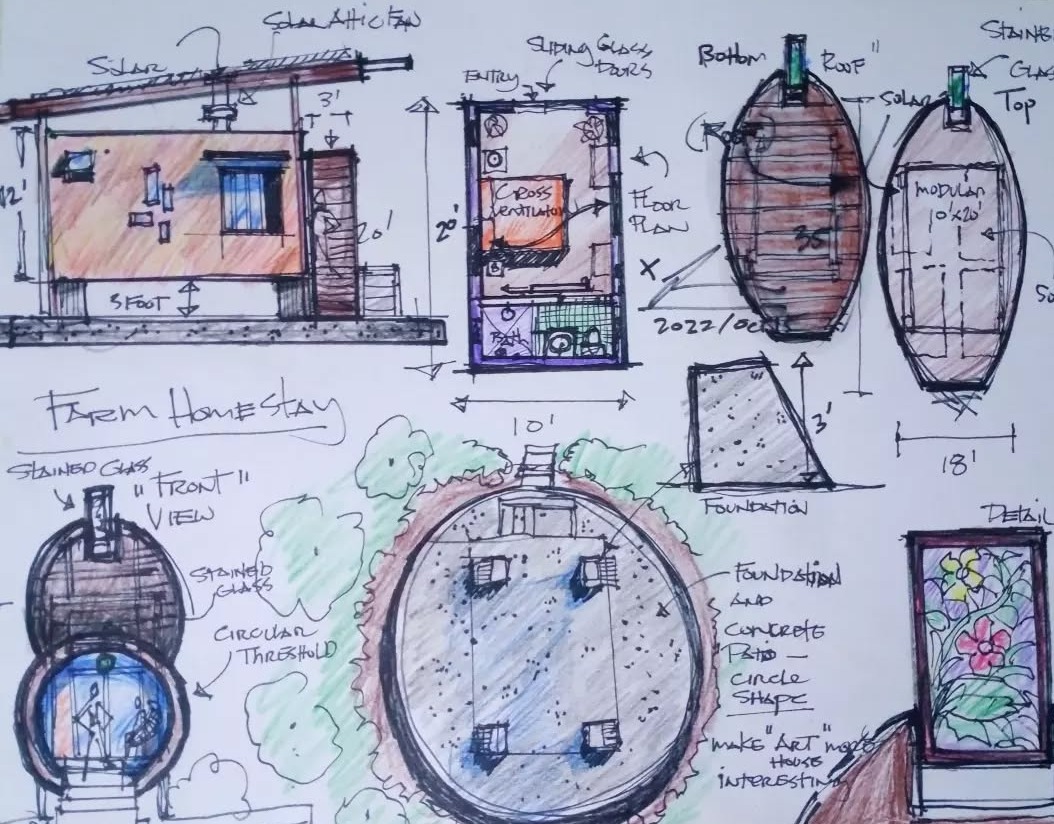 SOLAR ATTIC FAN
SOLAR
3'
12'
20'
3 FOOT
SLIDING GLASS
DOORS
ENTRY
20'
CROSS
VENTILATION
FLOOR
PLAN
10'
BOTTOM
ROOF"
SOLAR
35'
X
2022/
STAINED
GLASS
TOP
MODULAR
10'x20'
18'
FARM HOMESTAY
STAINED GLASS
"FRONT"
VIEW
STAINED
GLASS
CIRCULAR
THRESHOLD
3'
FOUNDATION
FOUNDATION
AND
CONCRETE
PATIO —
CIRCLE
SHAPE
MAKE "ART" MORE
HOUSE
INTERESTING
DETAIL